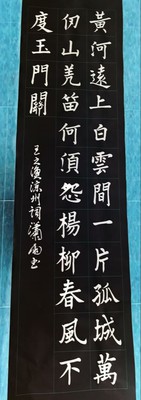 黃河遠上白雲間一片孤城萬
仞山羌笛何須怨楊柳春風不
度玉門關
王之渙涼州詞